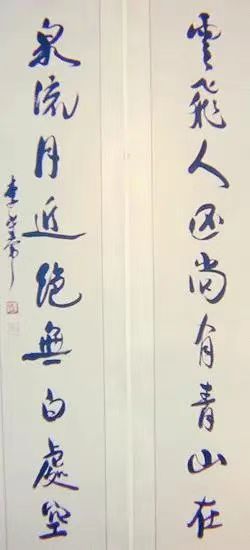 雲飛人還尚有青山在
泉流月近絕無白處空